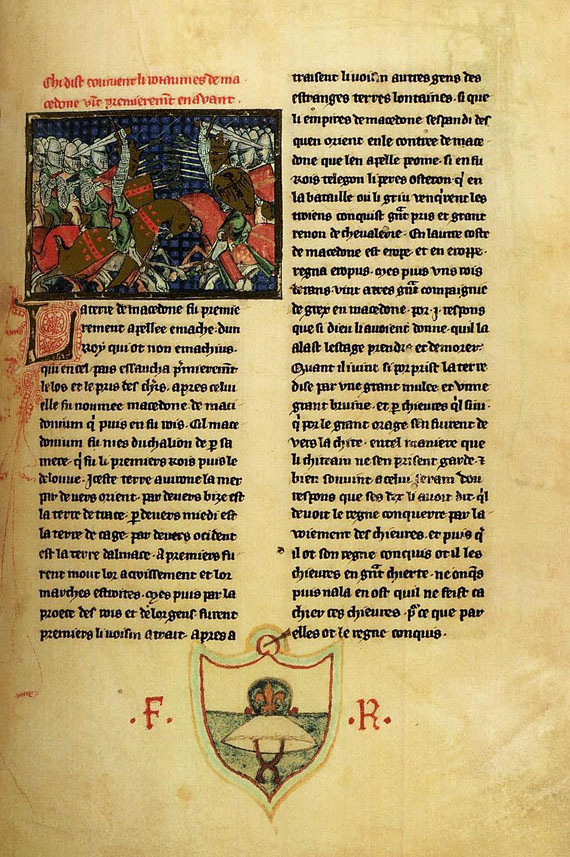 Chi dist comment li roiaumes de ma
cedone vīt premieremīt en avant.
La terre de macedone fu premie
rement apellee emache. dun
Roy qui ot non emachius.
qui en cel pais essaucha pīmierēmt
le los et le pris des chīrs. apres celui
elle fu noumee macedone. de maci
donium qͥ puis en fu rois. Cil mace
donium fu nies duchalion de p̱ sa
mere. qͥ fu li premiers rois puis le
deloiuue. Iceste terre avirone la mer
par devers orient. par devers bize est
la terre de trace. p̱ devers miedi est
la terre de cage. par devers occident
est la terre dalmace. A premiers fu
rent mout lor acroissement et lor
marches estroites. Mes puis par la
proece des rois et de lor gens furent
premiers li voisin atrait. Apres a
traisent li voisin autres gens des
estranges terres lontaines. si que
li empires de macedone sespandi des
quen orient en le contree de mace
done que len apelle peonie. si en fu
Rois telegon li peres osteron. qͥ en
la bataille ou li griu venqͥrent les
troiens conquist gn̄t pris et grant
renon de chevalerie. En lautre coste
de macedone est erope. et en eroppe.
regna eropus. Mes puis uns rois
vint a tres gn̄t compaignie
de grex en macedone. por .j. respons
que si dieu li avoient donne. quil la
alast lestage prendre et demorer.
Quant il vint si porprist la terre
dise par une grant mulce et une
grant bruine. et p̱ chieures qͥl siui.
qͥ por le grant orage sen fuirent de
vers la chite. en tel maniere que
li chiteain ne sen prisent garde. ⁊
bien souvint a celui seram dou
respons que ses dex li avoit dit. qͥl
devoit le regne conquerre par la
voiement des chieures. et puis qͥ
il ot son regne conquis ot il les
chieures en gn̄t chierte. ne onqͥs
puis nala en ost quil ne feist ca
chier ces chieures. p̱ ce que par
elles ot le regne conquis.
.F. .R.